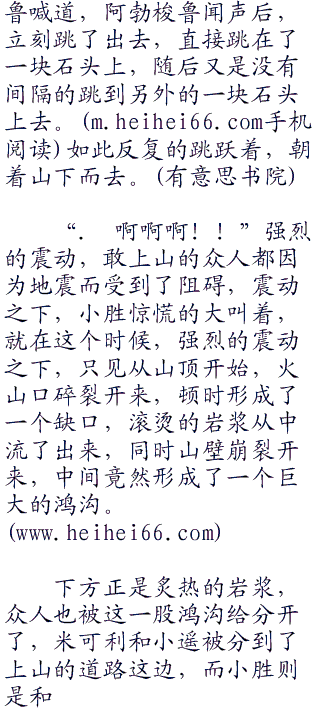 鲁喊道，阿勃梭鲁闻声后，
立刻跳了出去，直接跳在了
一块石头上，随后又是没有
间隔的跳到另外的一块石头
上去。(m.heihei66.com手机
阅读)如此反复的跳跃着，朝
着山下而去。(有意思书院)
“． 啊啊啊！！”强烈
的震动，敢上山的众人都因
为地震而受到了阻碍，震动
之下，小胜惊慌的大叫着，
就在这个时候，强烈的震动
之下，只见从山顶开始，火
山口碎裂开来，顿时形成了
一个缺口，滚烫的岩浆从中
流了出来，同时山壁崩裂开
来，中间竟然形成了一个巨
大的鸿沟。
(www.heihei66.com)
下方正是炙热的岩浆，
众人也被这一股鸿沟给分开
了，米可利和小遥被分到了
上山的道路这边，而小胜则
是和